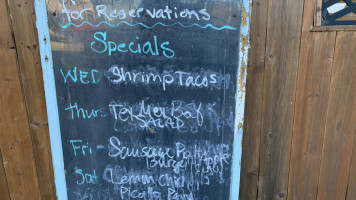 for Reservations
Specials
WED Shrimp Tacos
Thurs Tex Mex Beef
SALAD
Fri - Sausage Patty
Burger Apple
Sat Lemon Chic
Picatta